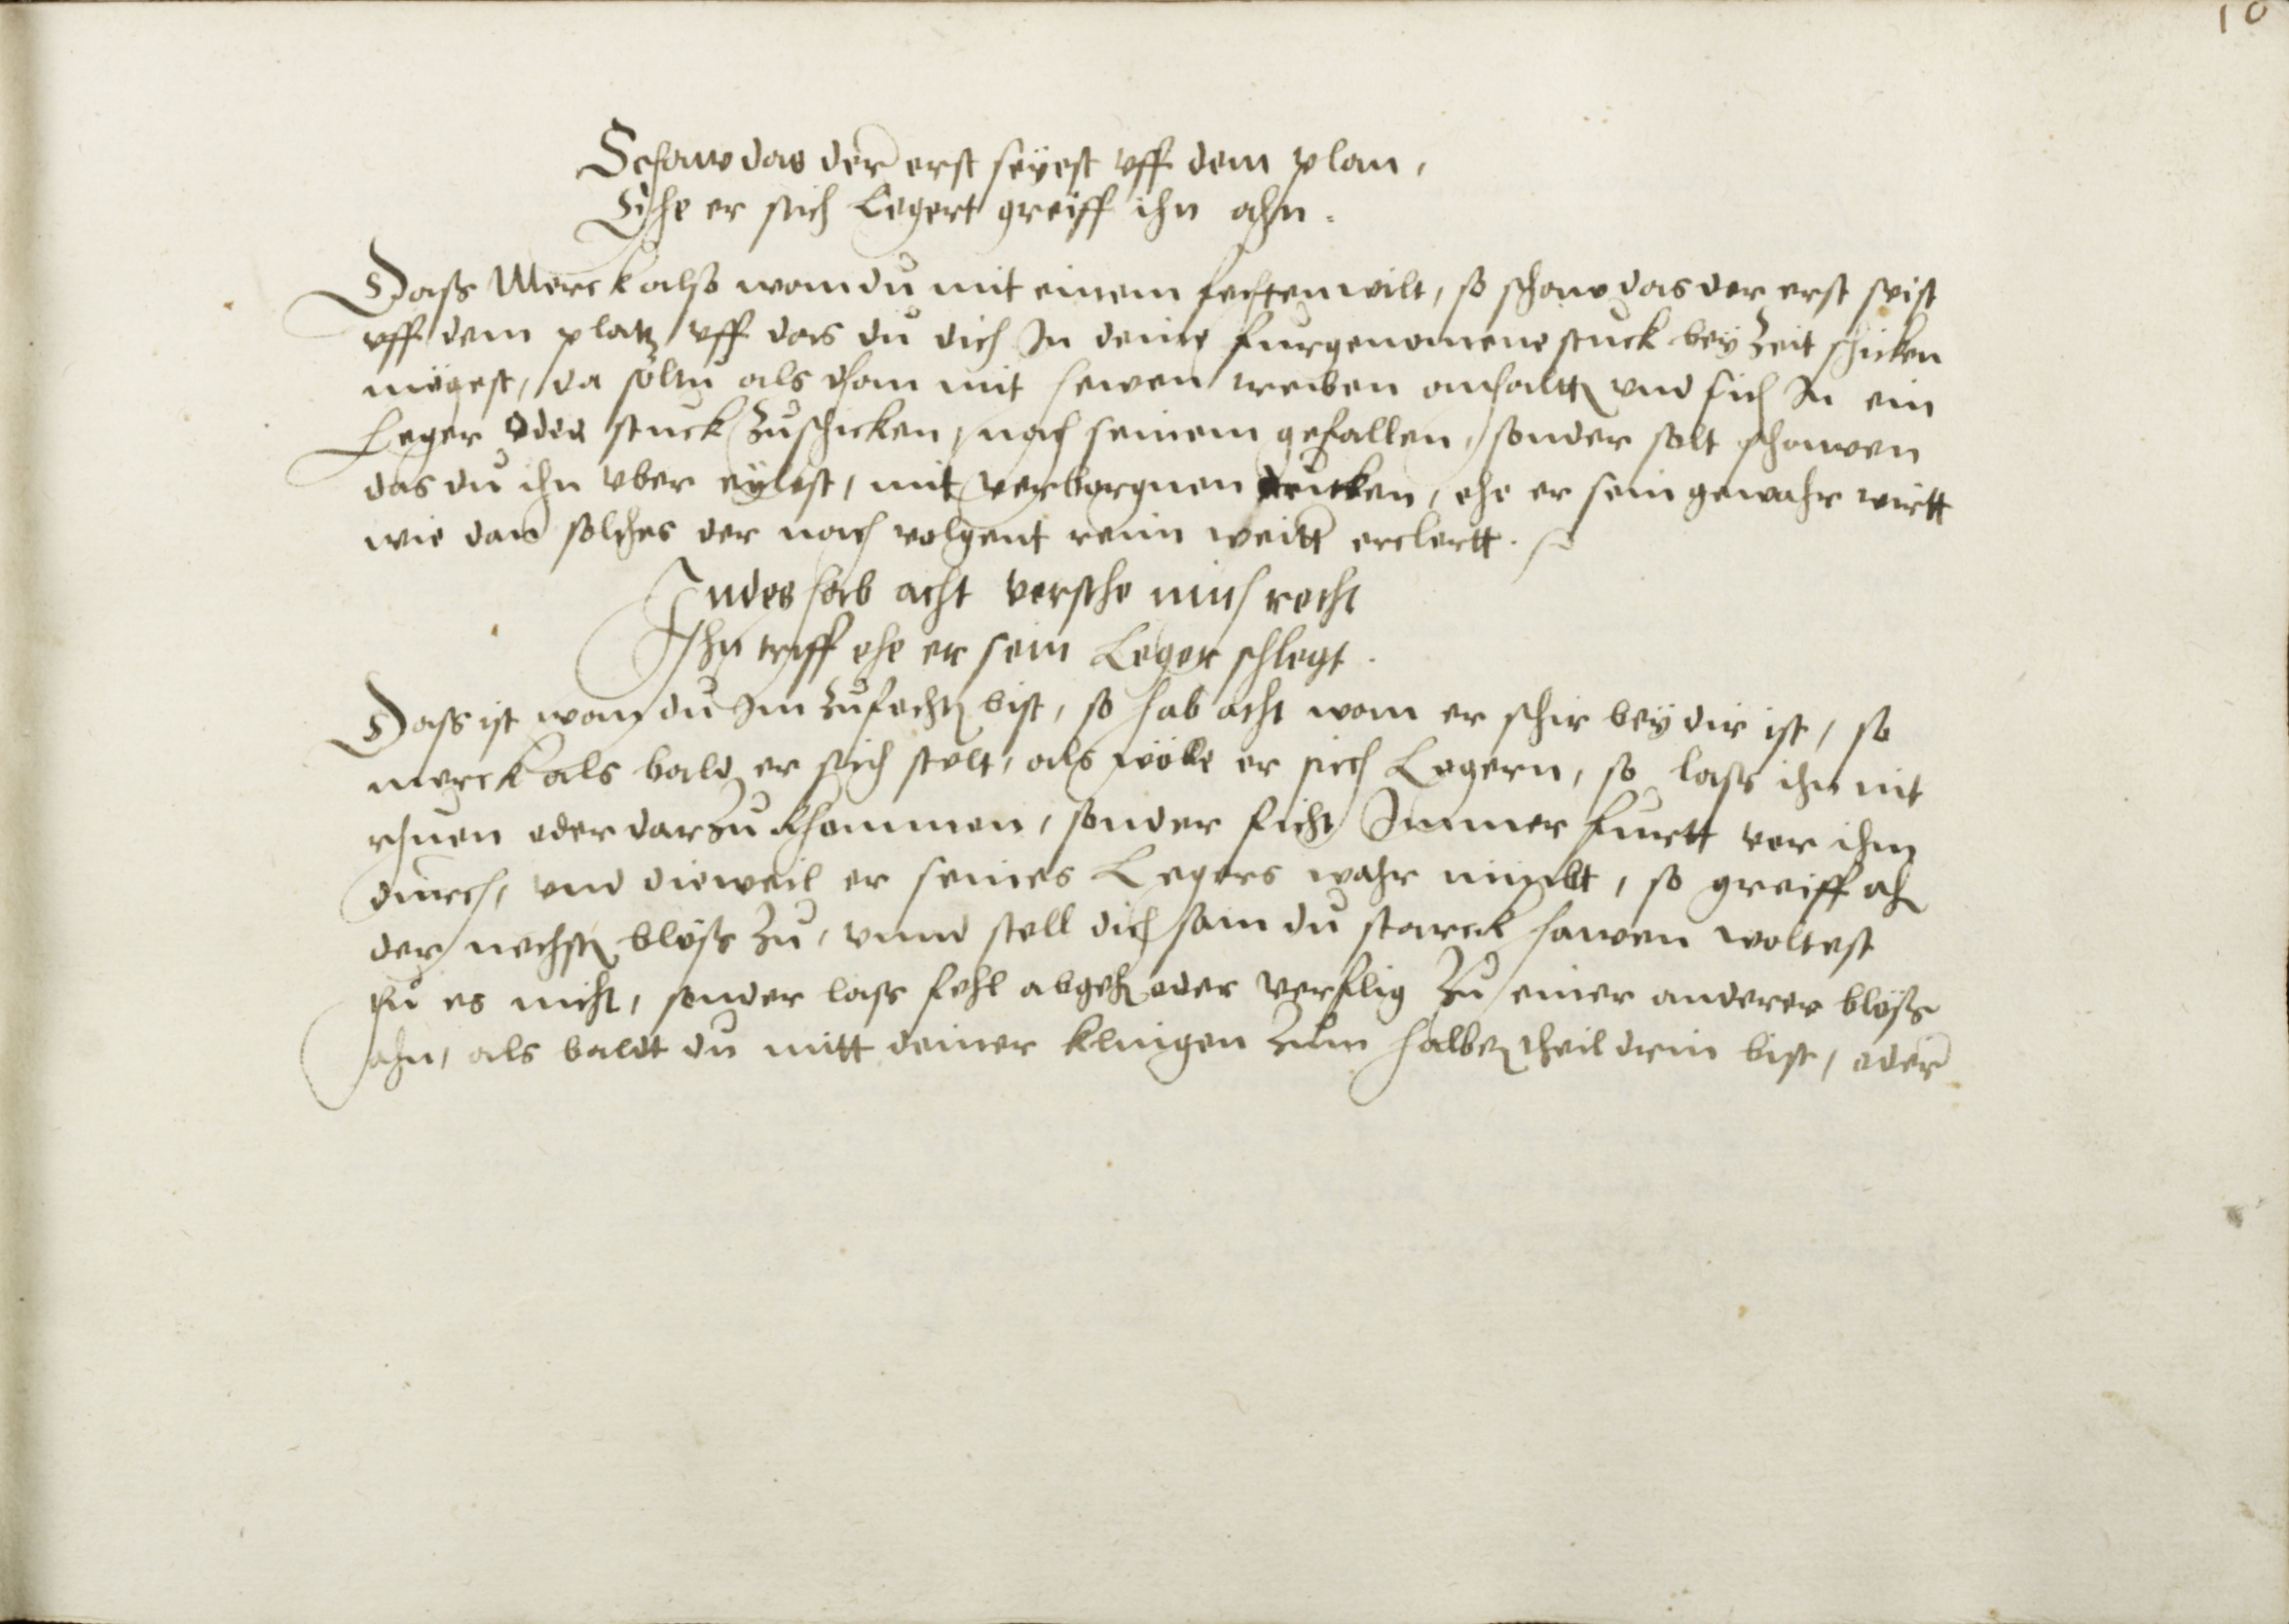 10
Schaw das der erst seÿest vff dem plan,
Ehe er sich Legert greiff ihn ahn.
Dasß Merck also wan du mit einem fechten wilt, so schaw das der erst seist
vff dem platz vff das du dich In deine furgenomene stuck beÿ Zeit schicken
mögest, da soltu als dhan mit hewen treiben anhaltten und sich In ein
Leger oder stuck Zuschicken, nach seinem gefallen, sonder solt schawen
das du ihn vber eÿlest, mit verborgnen stucken, ehe er sein gewahr wirtt
wie dan solches der nach volgent reim weitter erclertt.
Indes hab acht versthe mich recht
Ihn triff ehe er sein Leger schlegt.
Dasß ist wan du Im Zufechten bist, so hab acht wan er schir beÿ dir ist, so
merck als bald er sich stelt, als wölle er sich Legern, so lasß ihn nit
rhuen oder darzu khommen, sonder ficht Immer furtt vor ihm
durch, vnd dieweil er seines Legers wahr nimbt, so greiff ahn
der nechsten blösß Zu, vnnd stell dich sam du starck hawen woltest
thu es nicht, sonder lasß fehl abgehn oder verflig Zu einer anderer blösß
ahn, als baldt du mitt deiner klingen Zum halben theil drin bist, oder